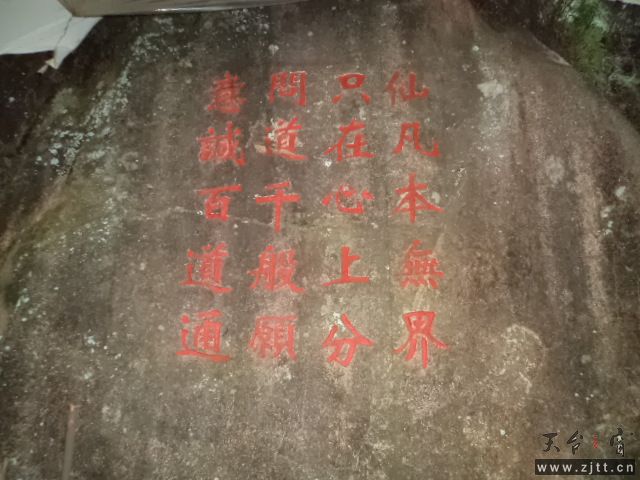 仙凡本無界
只在心上分
問道千般願
誠百道通
天台之窗
www.zjtt.cn